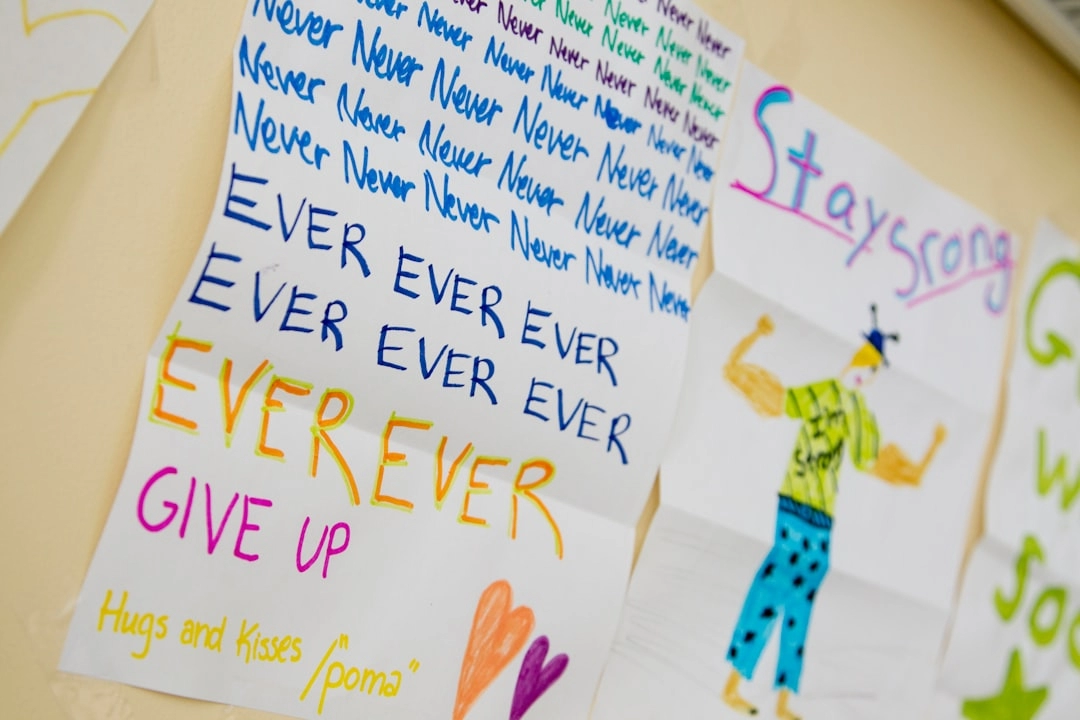 Never Never
Never Never Never
Never Never Never Never
Never Never Never Never Never
Never Never Never Never Never Never Never
Never Never Never Never Never Never
Never Never Never Never Never Never
Never Never Never Never Never Never
EVER EVER EVER
EVER EVER EVER
EVER EVER
GIVE UP
Hugs and Kisses /"poma"
Stay srong
I'm
strong